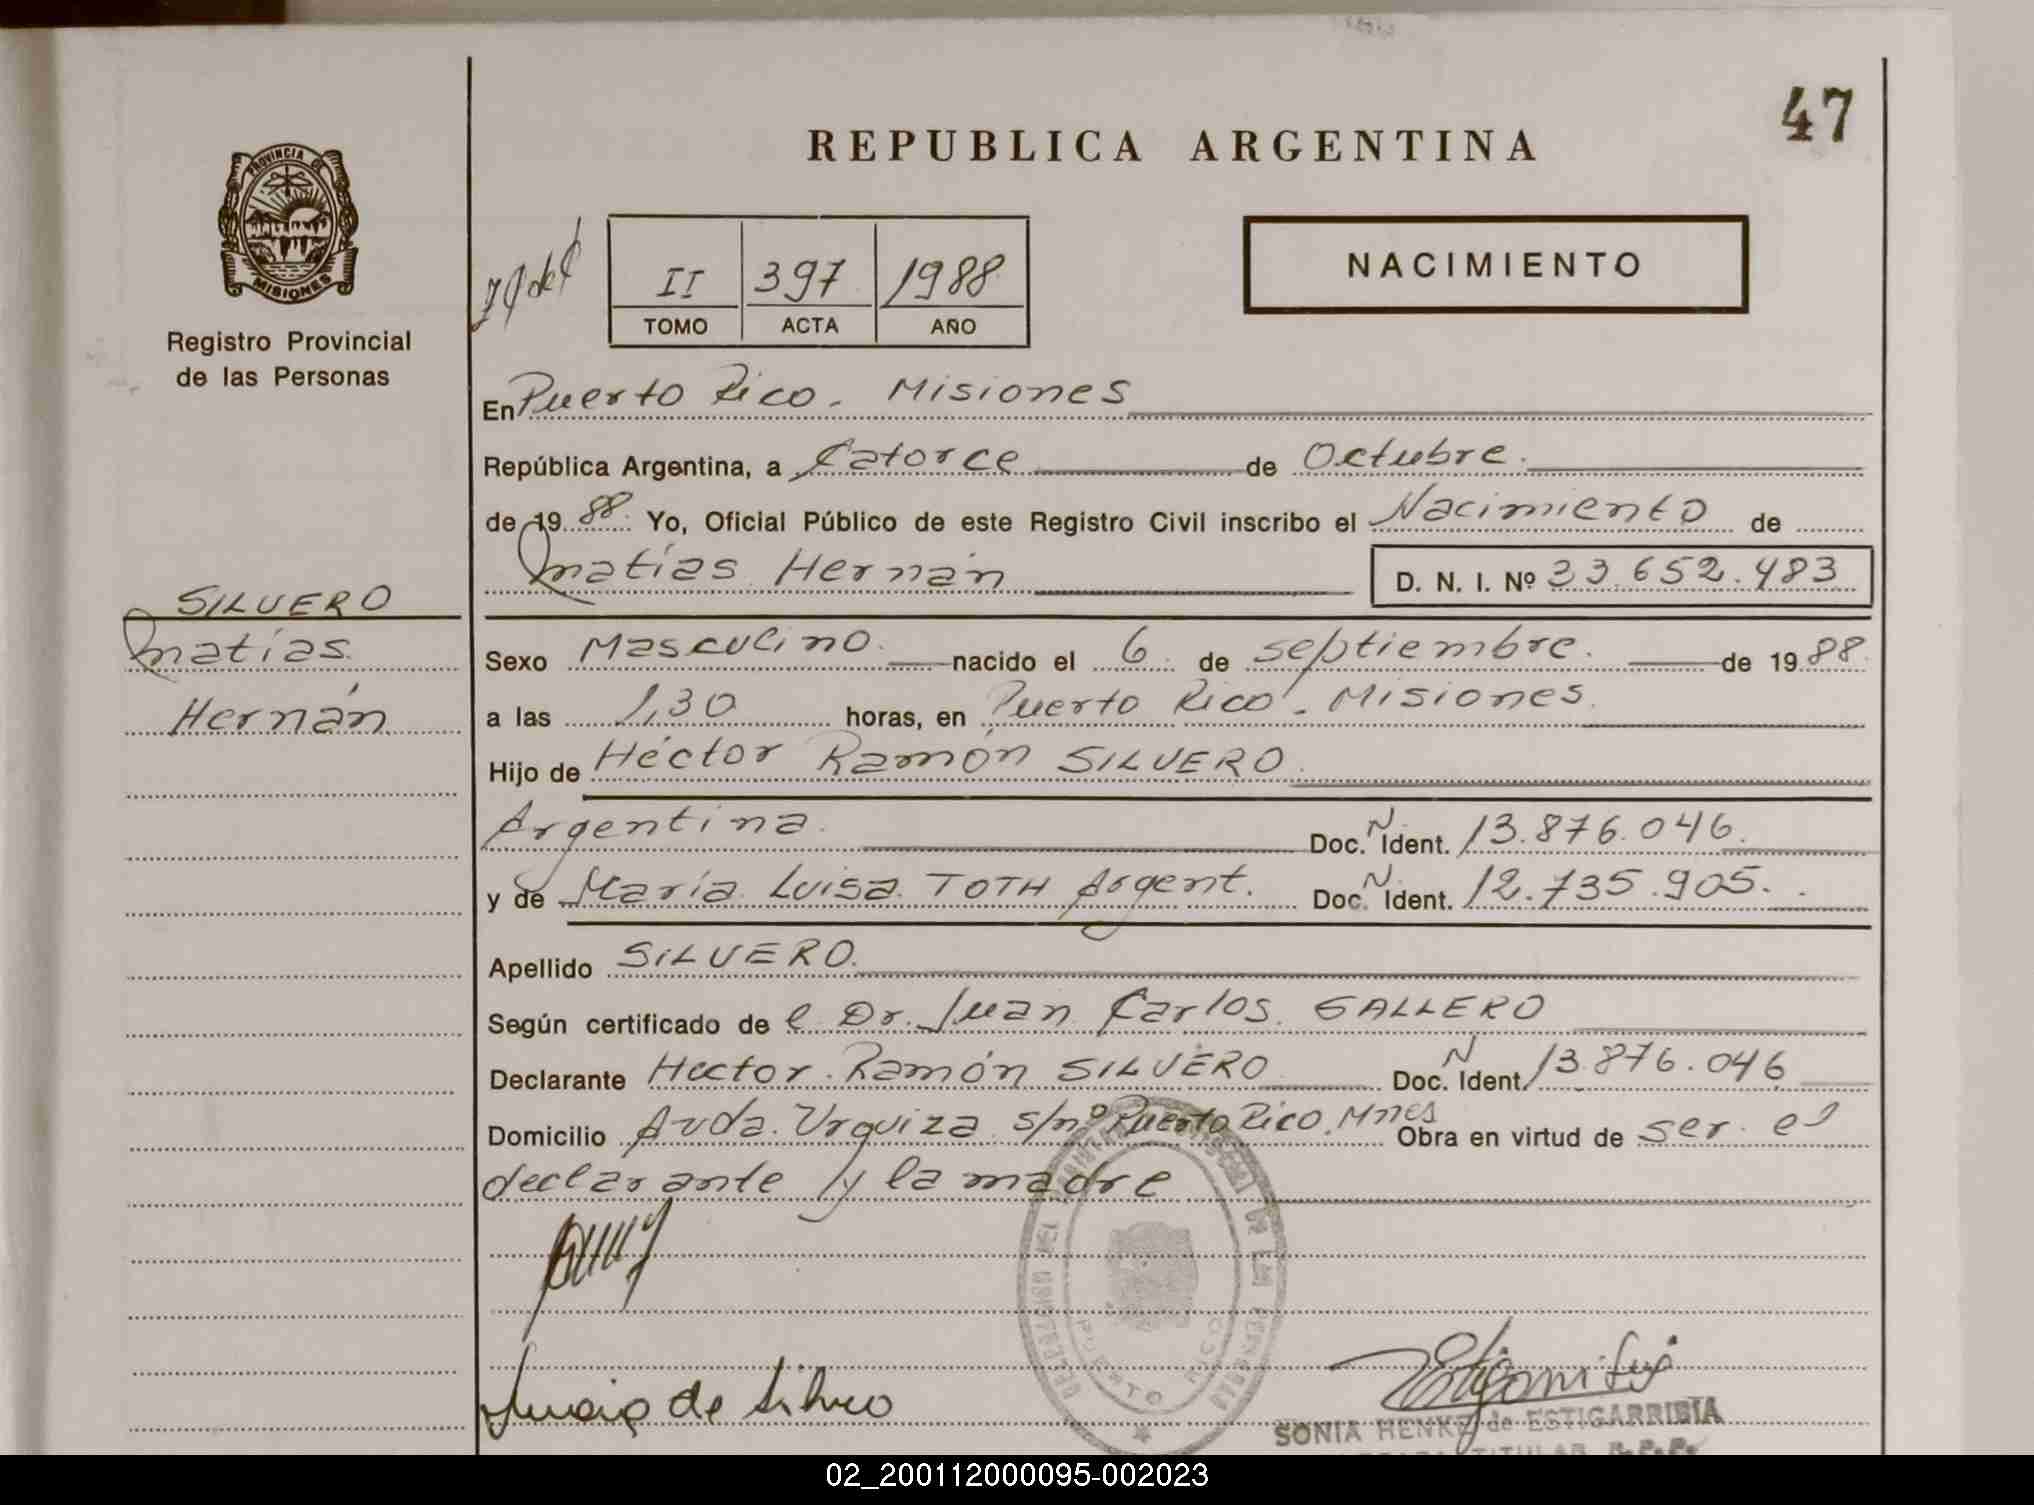 47
REPUBLICA ARGENTINA
PROVINCIA DE
MISIONES
Registro Provincial
de las Personas
II 397 1988
TOMO ACTA AÑO
NACIMIENTO
En Puerto Rico - Misiones
República Argentina, a Catorce de Octubre.
de 19 88. Yo, Oficial Público de este Registro Civil inscribo el Nacimiento de
Matías Hernán D. N. I. Nº 33.652.483
SILVERO
Matías
Hernán
Sexo Masculino. nacido el 6 de septiembre. de 19 88.
a las 1,30 horas, en Puerto Rico - Misiones.
Hijo de Héctor Ramón SILVERO.
Argentina. Doc. N Ident. 13.876.046.
y de María Luisa TOTH Argent. Doc. N Ident. 12.735.905.
Apellido SILVERO.
Según certificado de el Dr. Juan Carlos GALLERO
Declarante Hector Ramón SILVERO Doc. N Ident. 13.876.046
Domicilio Avda. Urquiza s/nº Puerto Rico. Mnes Obra en virtud de ser el
declarante y la madre
PUERTO RICO
de Silvero
SONIA HENKE de ESTIGARRIBIA
TITULAR R.P.P.
02_200112000095-002023